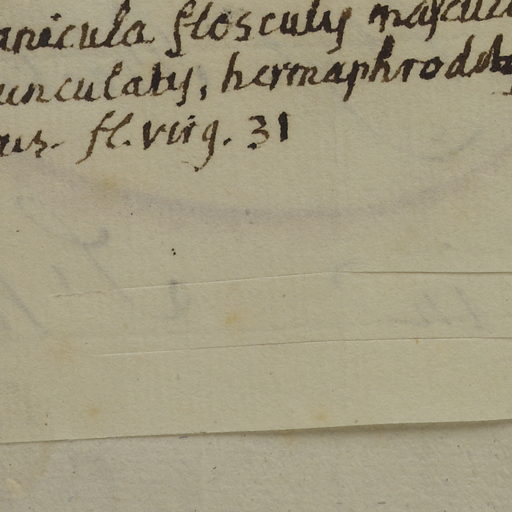 anicula flosculis mascul
unculatis, hermaphrodit
us. fl. virg. 31